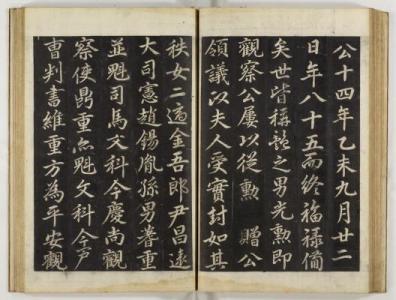 公十四年乙未九月廿二
日年八十五而終福祿備
矣世皆稱詑之男光勲即
觀察公屢以從勲贈公
領議政夫人受實封如其
秩女二適金吾郎尹昌遠
大司憲趙錫胤孫男眷重
並魁司馬文科今慶尚觀
察使鼎重亦魁文科今戶
曹判書維重方為平安觀